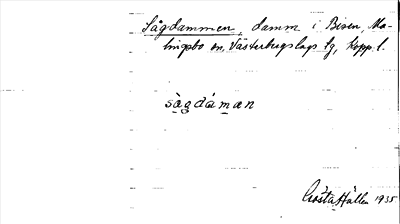 Sågdammen, damm i Bisen, Ma-
lingsbo sn, Västerbergslags tg, Kopp. l.
sàgdáman
Gösta Hallén 1935